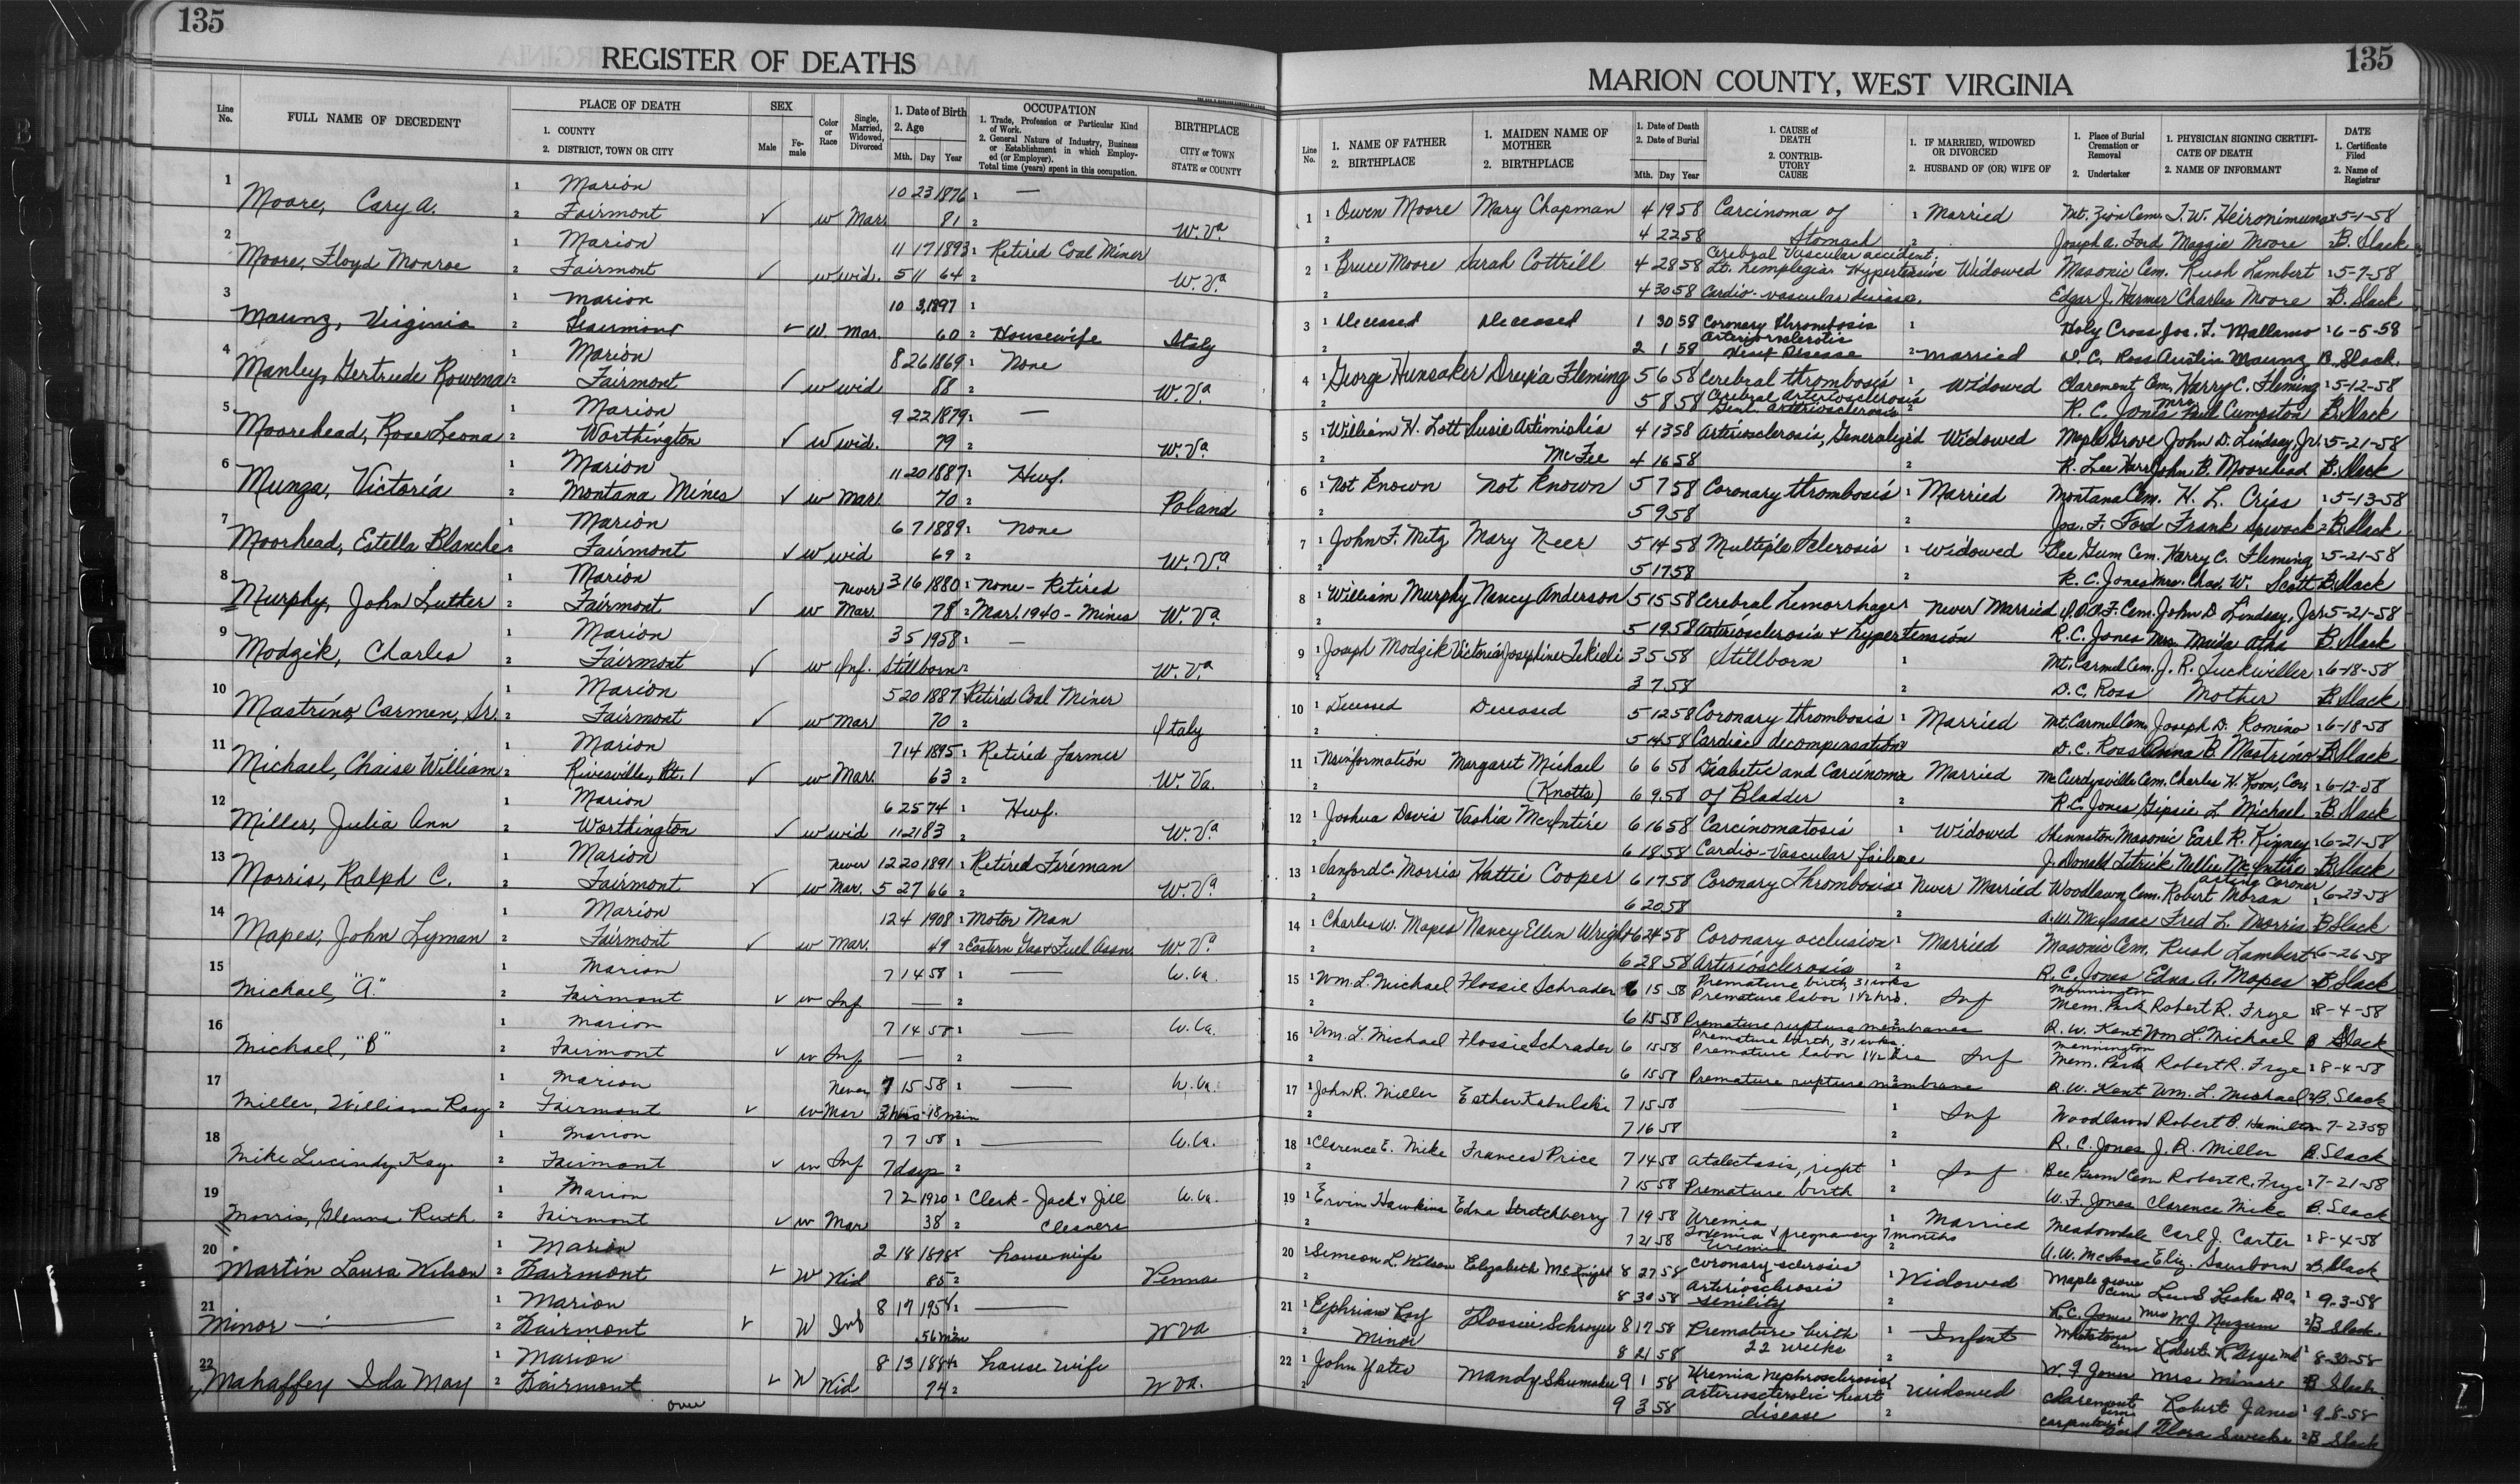 135
REGISTER OF DEATHS
Line No.
FULL NAME OF DECEDENT
PLACE OF DEATH
1. COUNTY
2. DISTRICT, TOWN OR CITY
SEX
Male
Fe-male
Color or Race
Single, Married, Widowed, Divorced
1. Date of Birth
2. Age
Mth. Day Year
OCCUPATION
1. Trade, Profession or Particular Kind of Work.
2. General Nature of Industry, Business or Establishment in which Employ-ed (or Employer).
Total time (years) spent in this occupation.
BIRTHPLACE
CITY or TOWN
STATE or COUNTY
1 Moore, Cary A. 1 Marion 10 23 1876 1 —
2 Fairmont ✓ w Marr. 81 2 W. Va
2 Moore, Floyd Monroe 1 Marion 11 17 1893 1 Retired Coal Miner
2 Fairmont ✓ w wid. 5 11 64 2 W. Va
3 Maunz, Virginia 1 Marion 10 3 1897 1
2 Fairmont ✓ W. Mar. 60 2 Housewife Italy
4 Manley, Gertrude Rowena 1 Marion 8 26 1869 1 None
2 Fairmont ✓ w wid 88 2 W. Va
5 Moorehead, Rose Leona 1 Marion 9 22 1879 1 —
2 Worthington ✓ W wid. 79 2 W. Va
6 Munza, Victoria 1 Marion 11 20 1887 1 Hwf.
2 Montana Mines ✓ w Mar. 70 2 Poland
7 Moorhead, Estella Blanche 1 Marion 6 7 1889 1 None
2 Fairmont ✓ w wid 69 2 W. Va
8 Murphy, John Luther 1 Marion Never 3 16 1880 1 None - Retired
2 Fairmont ✓ w Mar. 78 2 Mar. 1940 - Mines W. Va
9 Modzik, Charles 1 Marion 3 5 1958 1 —
2 Fairmont ✓ w Inf. Stillborn 2 W. Va
10 Mastrino, Carmen, Sr. 1 Marion 5 20 1887 1 Retired Coal Miner
2 Fairmont ✓ w Mar 70 2 Italy
11 Michael, Chaise William 1 Marion 7 14 1895 1 Retired Farmer
2 Rivesville, Rt. 1 ✓ w Mar. 63 2 W. Va.
12 Miller, Julia Ann 1 Marion 6 25 74 1 Hwf.
2 Worthington ✓ w wid 11 21 83 2 W. Va
13 Morris, Ralph C. 1 Marion Never 12 20 1891 1 Retired Fireman
2 Fairmont ✓ w Mar. 5 27 66 2 W. Va
14 Mapes, John Lyman 1 Marion 12 4 1908 1 Motor Man
2 Fairmont ✓ w Mar. 49 2 Eastern Gas & Fuel Assn. W. Va
15 Michael, "A." 1 Marion 7 14 58 1 — W. Va.
2 Fairmont ✓ w Inf — 2
16 Michael, "B" 1 Marion 7 14 58 1 — W. Va.
2 Fairmont ✓ w Inf — 2
17 Miller, William Ray 1 Marion Never 7 15 58 1 — W. Va.
2 Fairmont ✓ w Mar 3 hrs 18 min 2
18 Mike Lucindy Kay 1 Marion 7 7 58 1 — W. Va.
2 Fairmont ✓ w Inf 7 days 2
19 Morris, Glenna Ruth 1 Marion 7 2 1920 1 Clerk - Jack & Jill W. Va.
2 Fairmont ✓ w Mar 38 2 Cleaners
20 Martin Laura Wilson 1 Marion 2 18 housewife
2 Fairmont ✓ W Wid 2 Penna
21 Minor — 1 Marion 8 17 1958 1 —
2 Fairmont ✓ W Inf 56 min W Va
22 Mahaffey Ida May 1 Marion 8 13 1884 1 house wife
2 Fairmont ✓ W Wid 74 2 W Va.
over
135
MARION COUNTY, WEST VIRGINIA
Line No.
1. NAME OF FATHER
2. BIRTHPLACE
1. MAIDEN NAME OF MOTHER
2. BIRTHPLACE
1. Date of Death
2. Date of Burial
Mth. Day Year
1. CAUSE of DEATH
2. CONTRIB-UTORY CAUSE
1. IF MARRIED, WIDOWED OR DIVORCED
2. HUSBAND OF (OR) WIFE OF
1. Place of Burial Cremation or Removal
2. Undertaker
1. PHYSICIAN SIGNING CERTIFI-CATE OF DEATH
2. NAME OF INFORMANT
DATE
1. Certificate Filed
2. Name of Registrar
1 1 Owen Moore Mary Chapman 4 19 58 Carcinoma of 1 Married Mt. Zion Cem. J. W. Heironimus 1 5-1-58
2 4 22 58 Stomach 2 Joseph A. Ford Maggie Moore 2 B. Slack
2 1 Bruce Moore Sarah Cottrill 4 28 58 Cerebral Vascular accident; Lt. hemplegia. Hypertensive Widowed Masonic Cem. Rush Lambert 1 5-7-58
2 4 30 58 Cardio-vascular disease. Edgar J. Harmer Charles Moore B. Slack
3 1 Deceased Deceased 1 30 58 Coronary thrombosis 1 Holy Cross Jos. T. Mallamo 1 6-5-58
2 2 1 58 Arteriosclerotic Heart Disease 2 Married D. C. Ross Austin Maunz B. Slack.
4 1 George Hunsaker Drexia Fleming 5 6 58 Cerebral thrombosis 1 Widowed Claremont Cem. Harry C. Fleming 1 5-12-58
2 5 8 58 Cerebral Arteriosclerosis Genl. arteriosclerosis 2 R. C. Jones Mrs. Paul Cumpston B. Slack
5 1 William H. Lott Susie Artimishia 4 13 58 Arteriosclerosis, Generaliz'd Widowed Maple Grove John D. Lindsay, Jr. 5-21-58
2 McFee 4 16 58 2 R. Lee Harr John B. Moorehead B. Slack
6 1 Not Known Not Known 5 7 58 Coronary thrombosis 1 Married Montana Cem. H. L. Criss 1 5-13-58
2 5 9 58 2 Jos. F. Ford Frank Spivock 2 B. Slack
7 1 John F. Metz Mary Neer 5 14 58 Multiple Sclerosis 1 Widowed Bee Gum Cem. Harry C. Fleming 1 5-21-58
2 5 17 58 2 R. C. Jones Mrs. Chas. W. Scott B. Slack
8 1 William Murphy Nancy Anderson 5 15 58 Cerebral hemorrhage 1 Never Married I.O.O.F. Cem. John D. Lindsay, Jr. 5-21-58
2 5 19 58 Arteriosclerosis & hypertension R. C. Jones Mrs. Maida Atha B. Slack
9 1 Joseph Modzik Victoria Josephine Tekieli 3 5 58 Stillborn 1 Mt. Carmel Cem. J. R. Tuckwiller 1 6-18-58
2 3 7 58 2 D. C. Ross Mother B. Slack
10 1 Deceased Deceased 5 12 58 Coronary thrombosis 1 Married Mt. Carmel Cem. Joseph D. Romino 1 6-18-58
2 5 14 58 Cardiac decompensation D. C. Ross Anna B. Mastrino B. Slack
11 1 No information Margaret Michael 6 6 58 Diabetic and Carcinoma Married McCurdysville Cem. Charles H. Koon, Cor. 1 6-12-58
2 (Knotts) 6 9 58 of Bladder 2 R. C. Jones Gipsie L. Michael 2 B. Slack
12 1 Joshua Davis Vashia McIntire 6 16 58 Carcinomatosis 1 Widowed Shinnston Masonic Earl R. Kinney 1 6-21-58
2 6 18 58 Cardio-Vascular failure J. Donald Tetrick Nellie McIntire B. Slack
13 1 Sanford C. Morris Hattie Cooper 6 17 58 Coronary Thrombosis 1 Never Married Woodlawn Cem. Robert Moran acting coroner 1 6-23-58
2 6 20 58 2 A. W. McIsaac Fred L. Morris B Slack
14 1 Charles W. Mapes Nancy Ellen Wright 6 24 58 Coronary occlusion 1 Married Masonic Cem. Rush Lambert 1 6-26-58
2 6 28 58 Arteriosclerosis 2 R. C. Jones Edna A. Mapes B Slack
15 1 Wm. L. Michael Flossie Schrader 6 15 58 Premature birth, 31 wks Premature labor 1 1/2 hrs. Inf Mannington Mem. Park Robert R. Frye 1 8-4-58
2 6 15 58 Premature rupture membranes R. W. Kent Wm L. Michael B Slack
16 1 Wm. L. Michael Flossie Schrader 6 15 58 Premature birth, 31 wks. Premature labor 1 1/2 hrs Inf Mannington Mem. Park Robert R. Frye 1 8-4-58
2 6 15 58 Premature rupture membrane R. W. Kent Wm. L. Michael 2 B. Slack
17 1 John R. Miller Esther Kabulski 7 15 58 — 1 Inf Woodlawn Robert B. Hamilton 7-23 58
2 7 16 58 2 R. C. Jones J. R. Miller B. Slack
18 1 Clarence E. Mike Frances Price 7 14 58 Atalectasis, right 1 Inf Bee Gum Cem Robert R. Frye 1 7-21-58
2 7 15 58 Premature birth 2 W. F. Jones Clarence Mike B. Slack
19 1 Ervin Hawkins Edna Stretchberry 7 19 58 Uremia 1 Married Meadowdale Carl J. Carter 1 8-4-58
2 7 21 58 Toxemia & pregnancy 7 months Uremia 2 A. W. McIsaac Eliz. Saurborn 2 B. Slack
20 1 Simeon L. Wilson Elizabeth McKnight 8 27 58 coronary sclerosis 1 Widowed Maple grove cem D.O. 1 9-3-58
2 8 30 58 arteriosclerosis senility 2 R. C. Jones Mrs W. J. Nuzum 2 B Slack.
21 1 Ephriam Ray Flossie Schroyer 8 17 58 Premature birth 1 Infant Whetstone cem Robert R Frye md 1 8-30-58
2 Minor 8 21 58 22 weeks 2 W. F Jones Mrs Minor 2 B Slack
22 1 John Yates Mandy Shumaker 9 1 58 Uremia nephrosclerosis 1 widowed Claremont cem Robert Janes 1 9-8-58
2 9 3 58 arteriosclerotic heart disease 2 carpenter & Ford Flora Swecker 2 B Slack